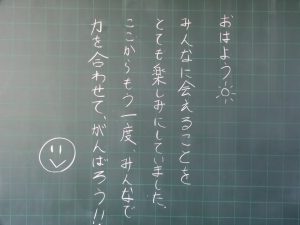 おはよう
みんなに会えることを
とても楽しみにしていました。
ここからもう一度、みんなで
力を合わせて、がんばろう!!